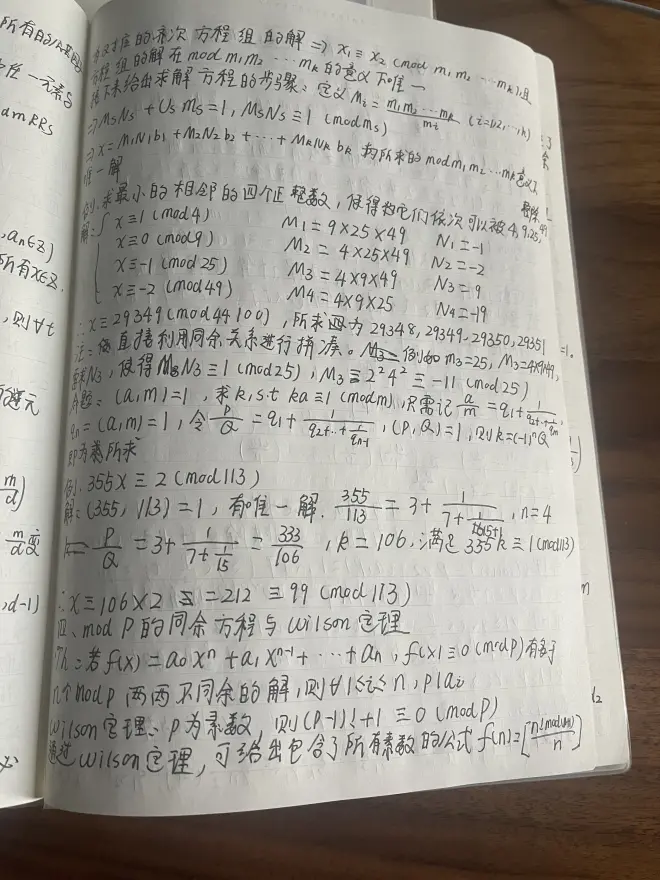 所有的
任一元素与
am RRs
, an∈Z)
所有x∈Z.
, 则∀t
m/d)
m/d 变
, d-1)
对应的齐次方程组的解 ⇒ x₁≡x₂ (mod m₁m₂…mₖ), 且
方程组的解在 mod m₁m₂…mₖ的意义下唯一
接下来给出求解方程的步骤: 定义 Mᵢ = m₁m₂…mₖ/mᵢ (i=1,2,…,k)
⇒ MₛNₛ + Uₛmₛ = 1, MₛNₛ≡1 (mod mₛ)
⇒ x = M₁N₁b₁ + M₂N₂b₂ + … + MₖNₖbₖ 为所求的 mod m₁m₂…mₖ意义下
唯一解
例. 求最小的相邻的四个正整数, 使得它们依次可以被4, 9, 25, 49整除.
解: { x≡1 (mod 4) M₁ = 9×25×49 N₁=-1
x≡0 (mod 9) M₂ = 4×25×49 N₂=-2
x≡-1 (mod 25) M₃ = 4×9×49 N₃=9
x≡-2 (mod 49) M₄ = 4×9×25 N₄=-19
∴ x≡29349 (mod 44100), 所求四为 29348, 29349, 29350, 29351
注: 直接利用同余关系进行拼凑。例如 m₃=25, M₃=4×9×49,
要求N₃, 使得 M₃N₃≡1 (mod 25), M₃≡2²4²≡-11 (mod 25)
命题: (a,m)=1, 求k, s.t ka≡1 (mod m), 只需记 a/m = q₁+1/(q₂+…+1/qₙ),
qₙ = (a,m) = 1, 令 P/Q = q₁ + 1/(q₂+…+1/qₙ₋₁), (P,Q)=1, 则 k=(-1)ⁿQ
即为所求
例. 355x≡2 (mod 113)
解: (355, 113) = 1, 有唯一解. 355/113 = 3 + 1/(7 + 1/(15+1)), n=4
P/Q = 3 + 1/(7+1/15) = 333/106, k=106, 满足 355k≡1 (mod 113)
∴ x≡106×2≡212≡99 (mod 113)
四、mod P 的同余方程与 Wilson 定理
Th: 若 f(x) = a₀xⁿ + a₁xⁿ⁻¹ + … + aₙ, f(x)≡0 (mod p) 有多于
n个 mod p 两两不同余的解, 则∀1≤i≤n, p|aᵢ
Wilson定理: P为素数, 则 (P-1)!+1≡0 (mod P)
通过Wilson定理, 可给出包含了所有素数的公式 f(n) = [n! mod(n+1)/n]